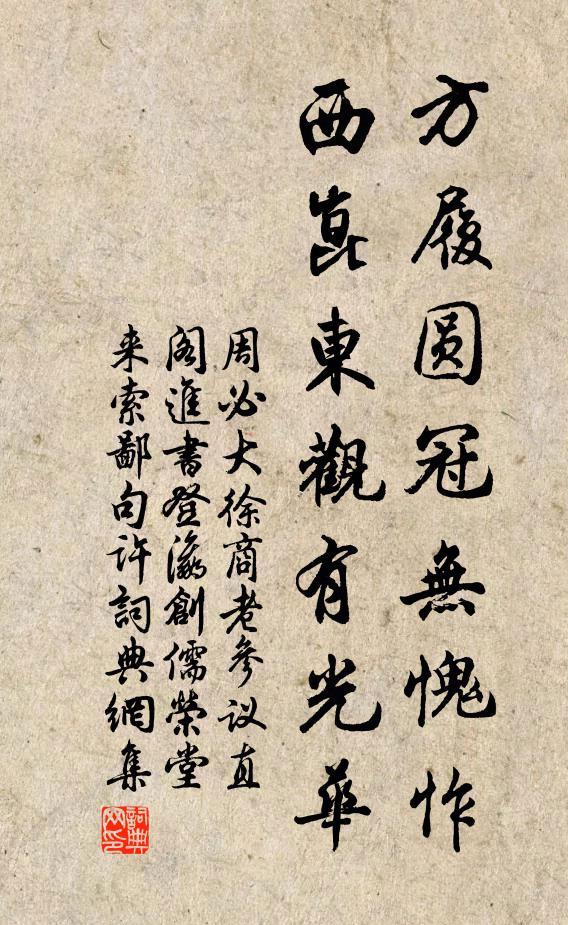 方履圆冠無愧怍
西崑東觀有光華
周必大徐商老參议直
阁進書登瀛創儒榮堂
来索鄙句许詞典網集
詞典网印